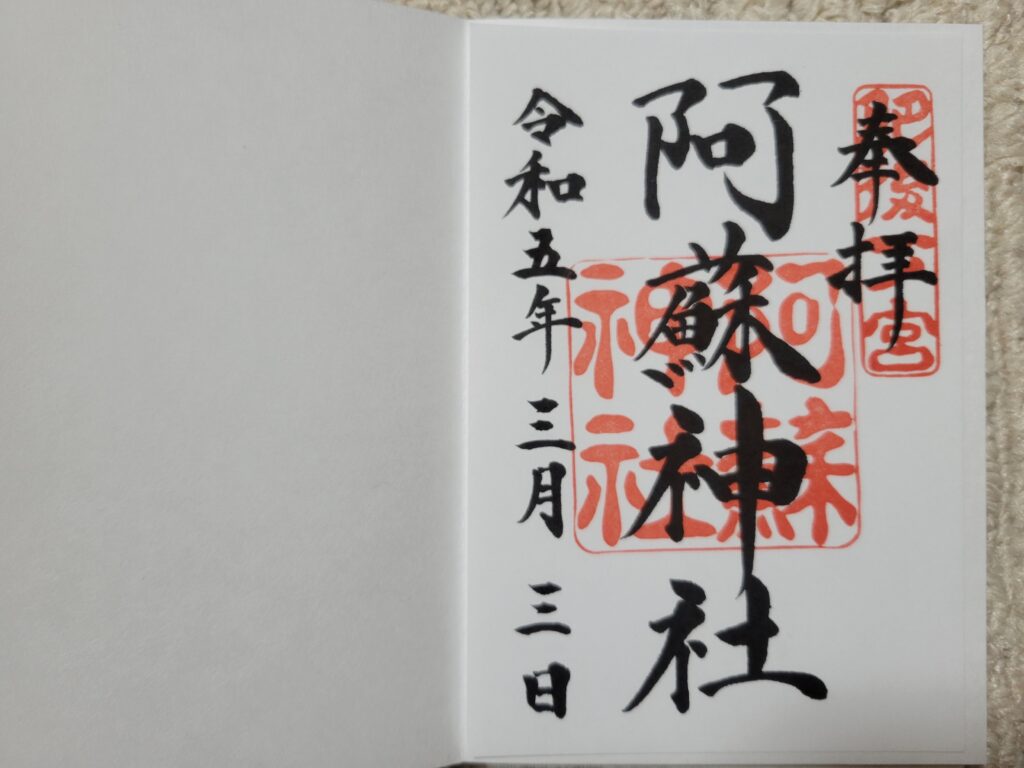 奉拝
肥後一宮
阿蘇神社
阿蘇
神社
令和五年三月三日